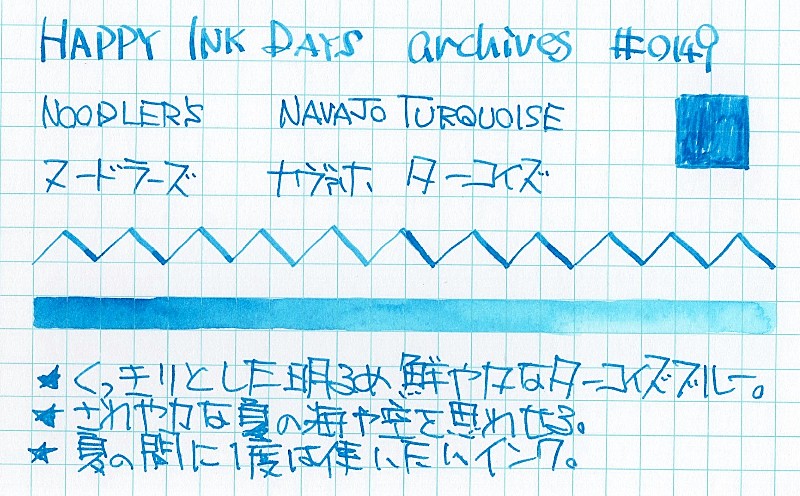 HAPPY INK DAYS archives #0149
NOODLER'S NAVAJO TURQUOISE
ヌードラーズ ナヴァホ ターコイズ
★ くっきりとした明るめ鮮やかなターコイズブルー。
★ さわやかな夏の海や空を思わせる。
★ 夏の間に1度は使いたいインク。